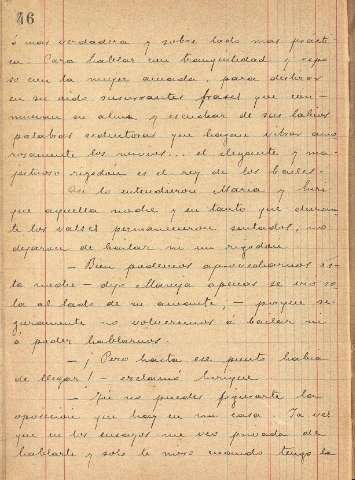 46
ó mas verdadera y sobre todo mas practi-
ca. Para hablar con tranquilidad y repo
so con la mujer amada, para deslizar
en su oido susurrantes frases que con-
muevan su alma y escuchar de sus labios
palabras seductoras que hagan vibrar amo
rosamente los nervios... el elegante y ma-
jestuoso rigodon es el rey de los bailes.
Asi lo entendieron Maria y Enri
que aquella noche y en tanto que duran-
te los valses permanecieron sentados, no
dejaron de bailar ni un rigodon.
- Bien podemos aprovecharnos es-
ta noche - dijo Maruja apenas se vio so-
la al lado de su amante, - porque se-
guramente no volveremos á bailar ni
á poder hablarnos
- ¡Pero hasta ese punto habia
de llegar! - exclamó Enrique
- Tu no puedes figurarte la
oposicion que hay en mi casa. Ya ves
que en los ensayos me veo privada de
hablarte y solo te miro cuando tengo la